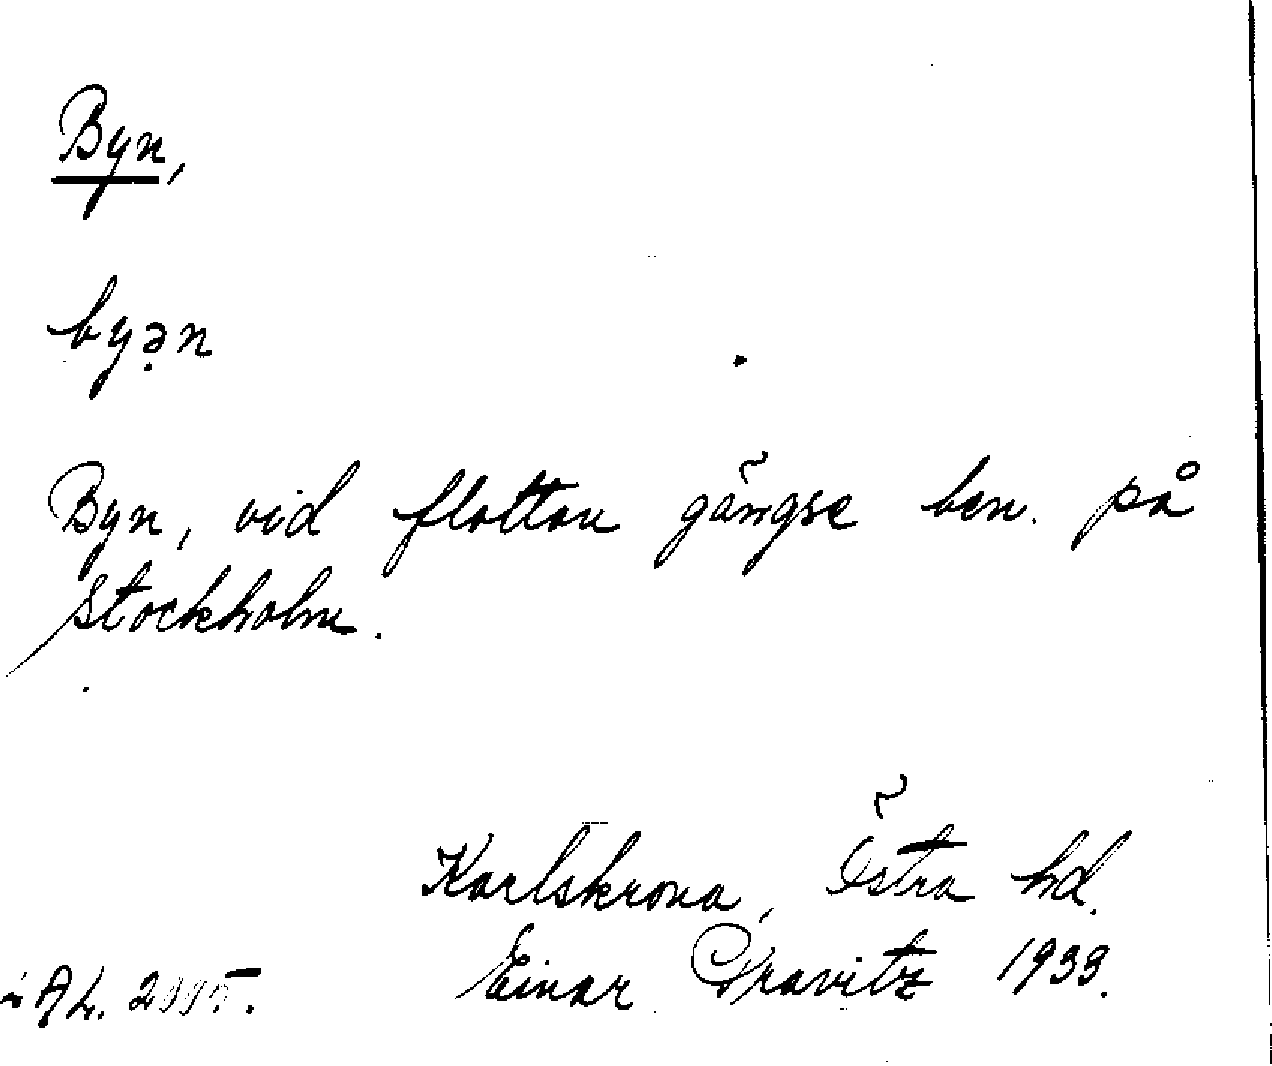 Byn,
byə̣n
Byn, vid flottan gängse ben. på
Stockholm.
Karlskrona, Östra hd.
Einar Gravitz 1933.
AL.